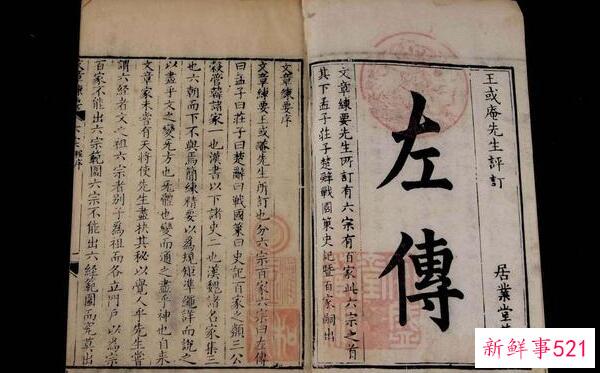 王或庵先生評訂
左傳
居業堂
文章練要先生所訂有六宗有百家此六宗之首
其下孟子莊子楚辭戰國策史記暨百家嗣出
文章練要序
文章練要王或庵先生所訂也分六宗百家六宗曰左傳
曰孟子曰莊子曰楚辭曰戰國策曰史記百家之類三公
穀管韓諸家一也漢書以下諸史二也漢魏諸名家集三
也六朝而下不與焉簡練精要以為規矩準繩詳而說之
以盡乎文之變先方也死體也變而通之盡乎神也自来
文章家未嘗有天將使先生盡抉其秘以嘗人乎先生嘗
謂六經者文之祖六宗者别子為祖而各立門戶以為宗
百家不能出六宗範圍六宗不能出六經範圍而究莫出
新鲜事521